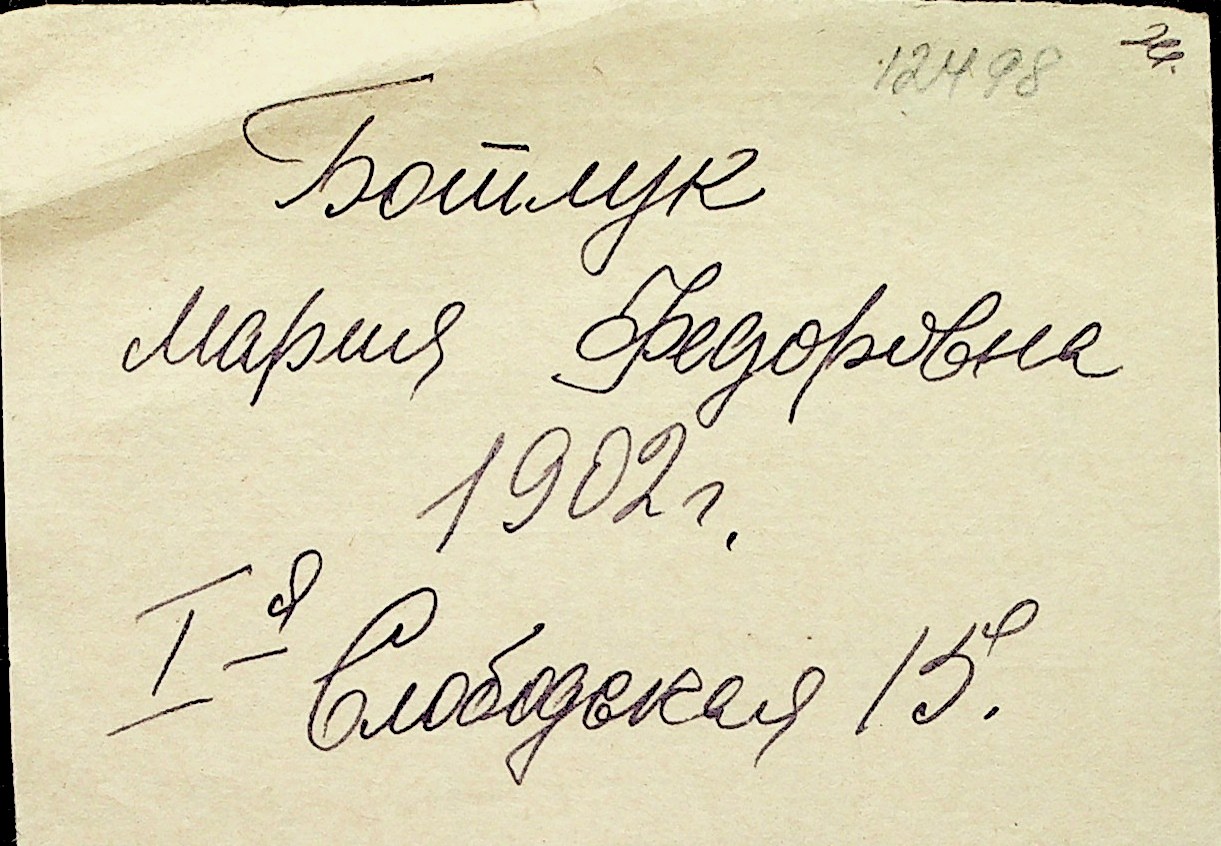 12498
Ботлук
Мария Федоровна
1902 г.
I-я Слободская 15.